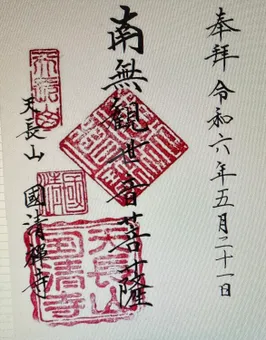 奉拝 令和六年五月二十一日
南無観世音菩薩
天長山 國清禅寺
天長山
國清寺